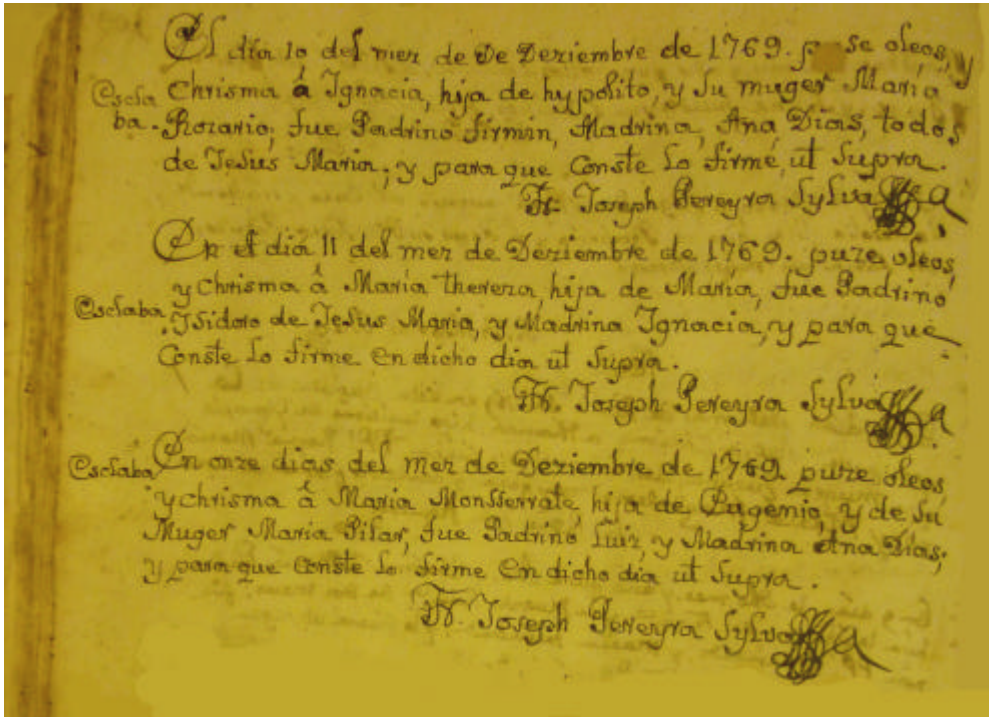 El dia 10 del mez de De Deziembre de 1769. p se oleos, y
Escla Chrisma â Ignacia, hija de hypolito, y su muger Maria
ba. Rozario, fue Padrino firmin, Madrina, Ana Dias, todos
de Jesus Maria, y para que Conste lo firmé, ut supra.
Fr. Joseph Pereyra Sylva
En el dia 11 del mez de Deziembre de 1769. puze oleos,
y chrisma â Maria thereza, hija de Maria, fue Padrino
Esclaba Ysidoro de Jesus Maria, y Madrina Ignacia, y para que
Conste lo firme en dicho dia ut supra.
Fr. Joseph Pereyra Sylva
Esclaba En onze dias del mez de Deziembre de 1769. puze oleos,
y chrisma â Maria Monsserrate, hija de Eugenio, y de su
Muger Maria Pilar, fue Padrino Luiz, y Madrina Ana Dias,
y para que Conste lo firme en dicho dia ut supra.
Fr. Joseph Pereyra Sylva